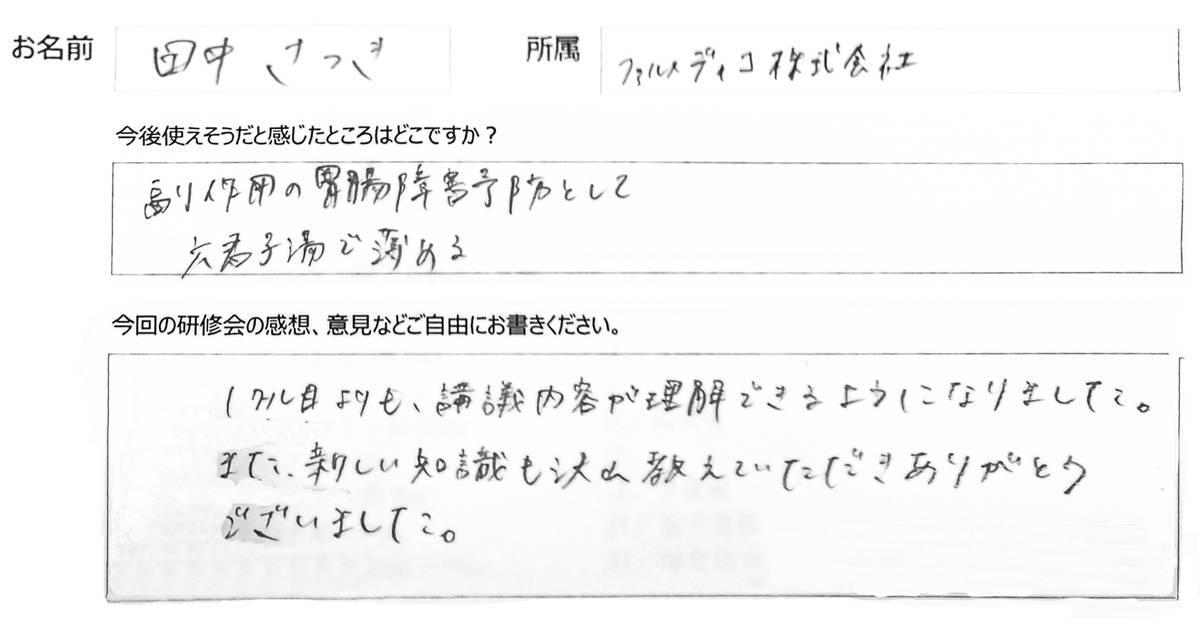 お名前 田中 さつき 所属 ファルメディコ株式会社
今後使えそうだと感じたところはどこですか？
副作用の胃腸障害予防として
六君子湯で薄める
今回の研修会の感想、意見などご自由にお書きください。
1クール目よりも、講議内容が理解できるようになりました。
また、新しい知識も沢山教えていただきありがとう
ございました。